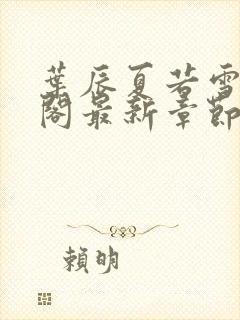 葉辰夏若雪
閣最新章節
賴明